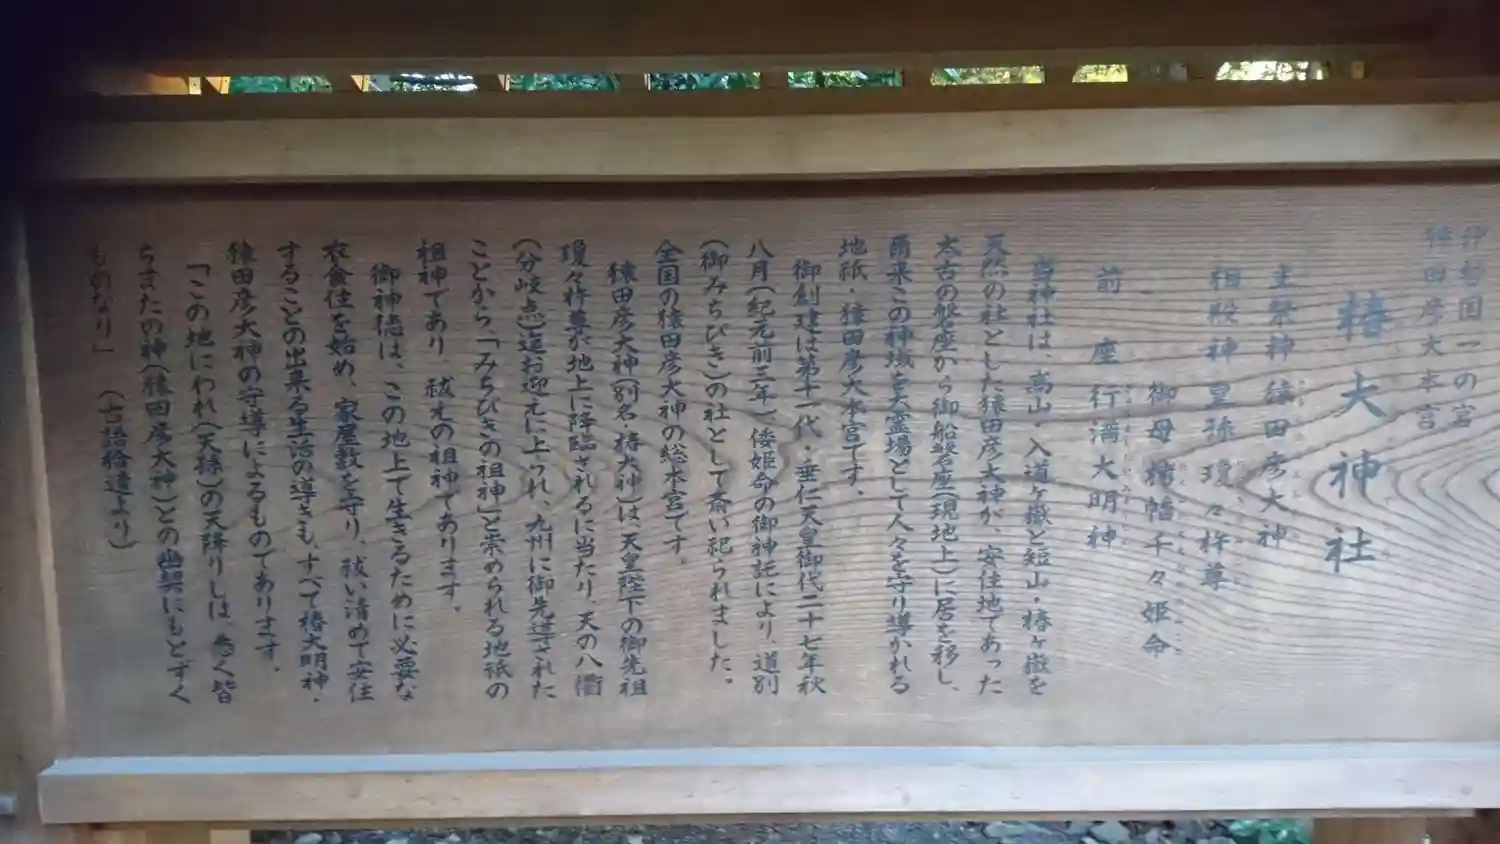 伊勢国一の宮
猿田彦大本宮
椿大神社
主祭神 猿田彦大神
相殿神 皇孫 瓊々杵尊
御母 栲幡千々姫命
前座 行満大明神
当神社は、高山・入道ヶ嶽と短山・椿ヶ嶽を
天然の社とした猿田彦大神が、安住地であった
太古の磐座から御船磐座(現地上)に居を移し、
爾来この神域を大霊場として人々を守り導かれる
地祇・猿田彦大本宮です。
御創建は第十一代・垂仁天皇御代二十七年秋
八月(紀元前三年)、倭姫命の御神託により、道別
(御みちびき)の社として斎い祀られました。
全国の猿田彦大神の総本宮です。
猿田彦大神(別名・椿大神)は、天皇陛下の御先祖
瓊々杵尊が地上に降臨されるに当たり、天の八衢
(分岐点)迄お迎えに上られ、九州に御先達された
ことから、「みちびきの祖神」と崇められる地祇の
祖神であり、祓えの祖神であります。
御神徳は、この地上で生きるために必要な
衣食住を始め、家屋敷を守り、祓い清めて安住
することの出来る生活の導きも、すべて椿大明神・
猿田彦大神の守導によるものであります。
「この地にわれ(天孫)の天降りしは、悉く皆
ちまたの神(猿田彦大神)との幽契にもとずく
ものなり」 (古語拾遺より)